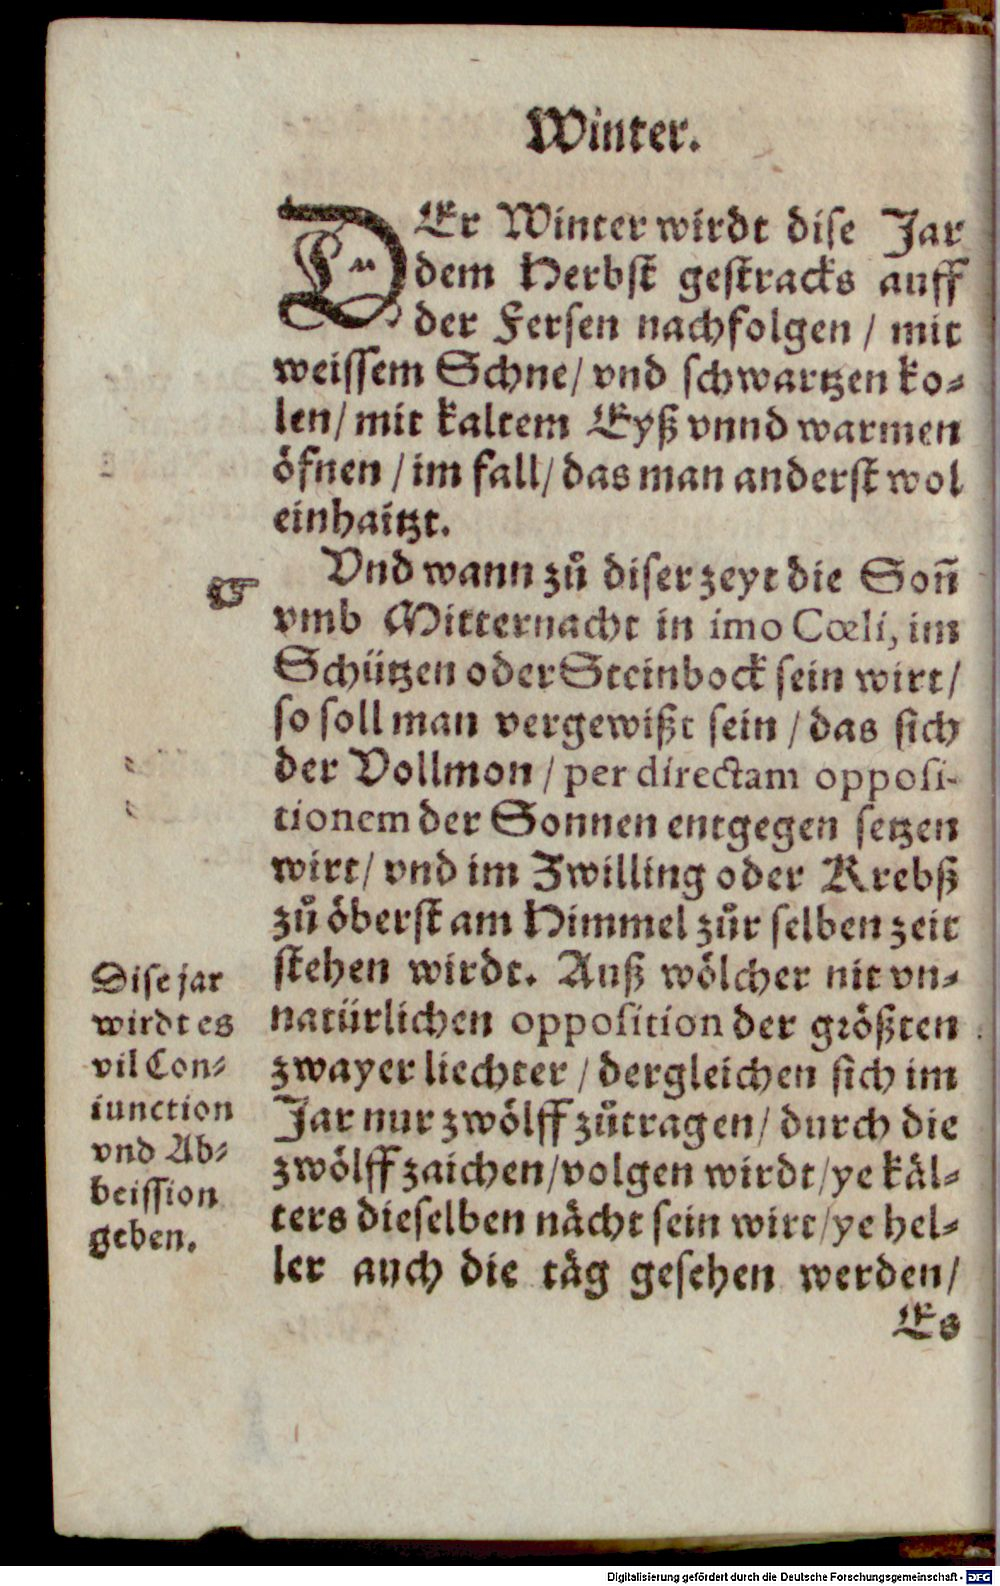 Winter.
DEr Winter wirdt dise Jar
dem Herbst gestracks auff
der Fersen nachfolgen / mit
weissem Schne/ vnd schwartzen ko-
len/ mit kaltem Eyß vnnd warmen
öfnen / im fall/ das man anderst wol
einhaitzt.
Vnd wann zů diser zeyt die Soñ
vmb Mitternacht in imo Cœli, im
Schützen oder Steinbock sein wirt/
so soll man vergewißt sein / das sich
der Vollmon / per directam opposi-
tionem der Sonnen entgegen setzen
wirt/ vnd im Zwilling oder Krebß
zů öberst am Himmel zůr selben zeit
stehen wirdt. Auß wölcher nit vn-
natürlichen opposition der größten
zwayer liechter / dergleichen sich im
Jar nur zwölff zůtragen/ durch die
zwölff zaichen/ volgen wirdt/ ye käl-
ters dieselben nächt sein wirt/ ye hel-
ler auch die täg gesehen werden/
Es
Dise jar
wirdt es
vil Con-
iunction
vnd Ab-
beission
geben.
Digitalisierung gefördert durch die Deutsche Forschungsgemeinschaft - DFG